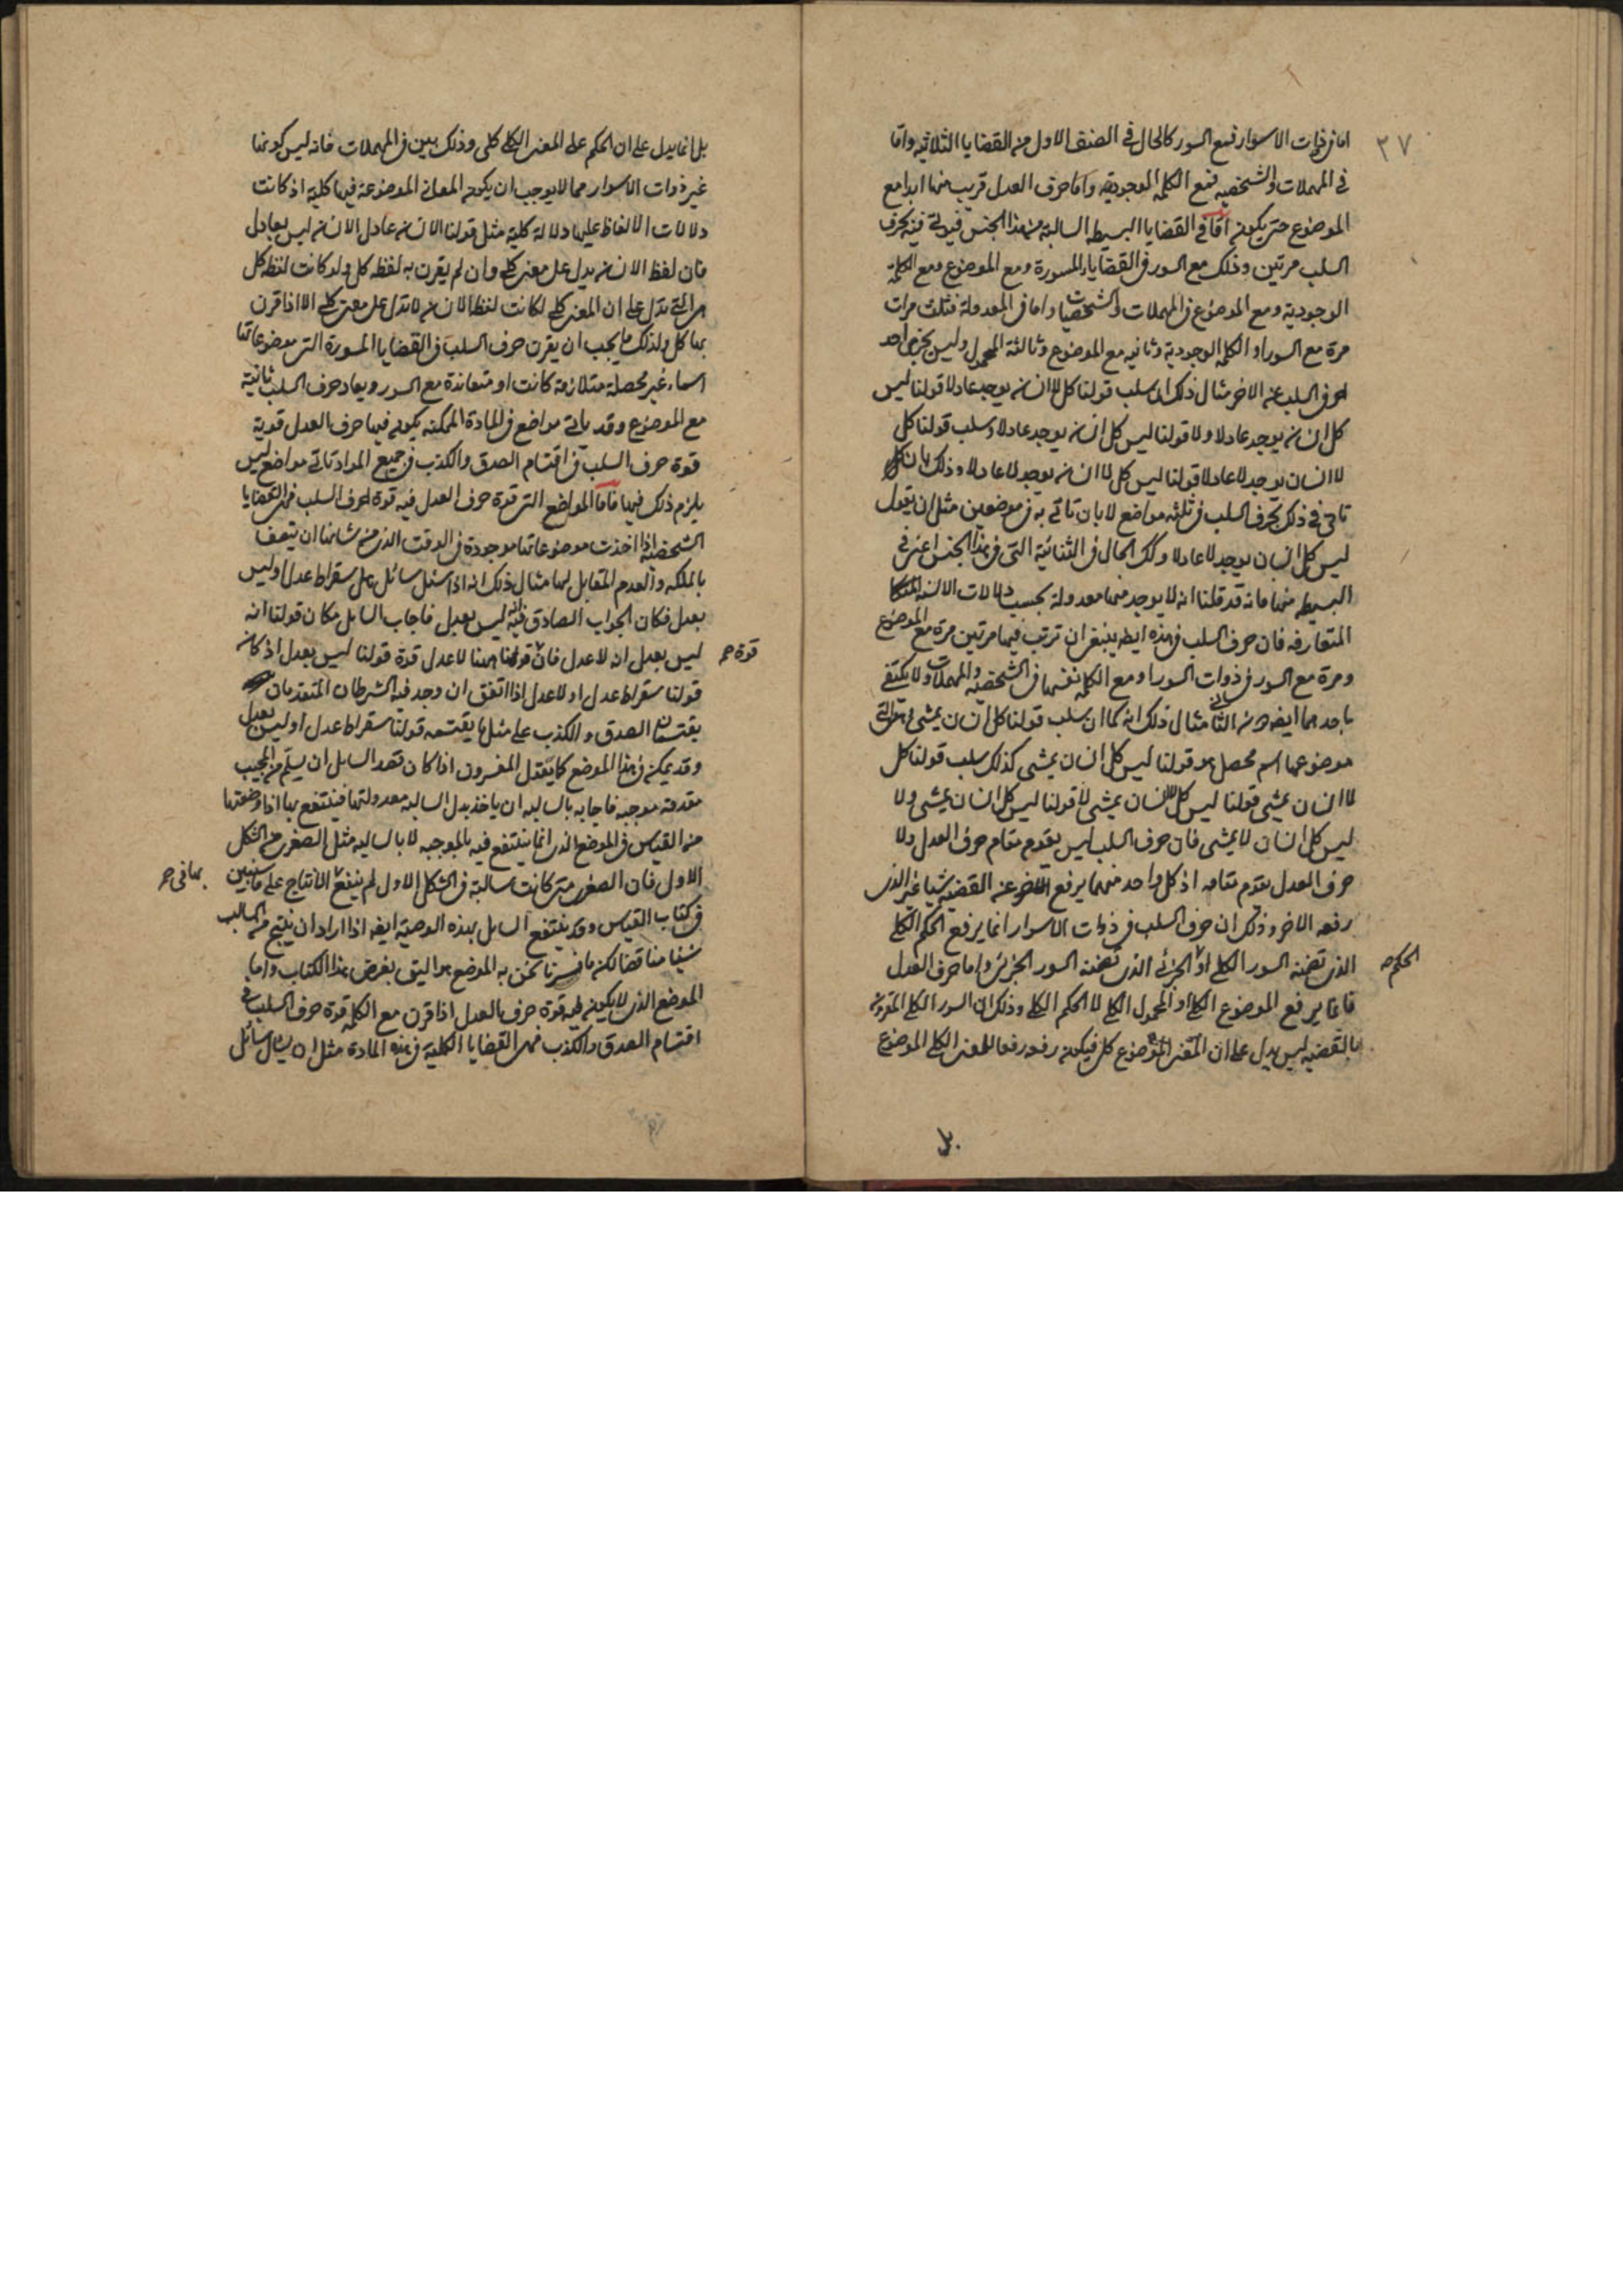 ٣٧
اما فى ذوات الاسوار فمع السور كالحال فى الصنف الاول من القضايا الثلاثيه واما
فى المهملات والشخصيه فمع الكلمه الوجوديه واما حرف العدل قريب منها ابدا مع
الموضوع حتى يكون اما فى القضايا البسيطه السالبة من هذا الجنس فيؤتى فيه بحرف
السلب مرتين وذلك مع السور فى القضايا المسورة ومع الموضوع ومع الكلمة
الوجودية ومع الموضوع فى المهملات والشخصيات واما فى المعدولة فثلث مرات
مرة مع السور او الكلمه الوجودية وثانيه مع الموضوع وثالثة مع المحمول وليس يجزى احد
حرفى السلب عن الاخر مثال ذلك ان سلب قولنا كل لا انسان يوجد عادلا قولنا ليس
كل انسان يوجد عادلا ولا قولنا ليس كل انسان يوجد عادلا وسلب قولنا كل
لا انسان يوجد لا عادلا قولنا ليس كل لا انسان يوجد لا عادلا وذلك بان
تاتى فى ذلك بحرف السلب فى ثلثه مواضع لا بان تاتى به فى موضعين مثل ان يقول
ليس كل انسان يوجد لا عادلا وكذلك الحال فى الثنائية التى فى هذا الجنس اعنى فى
البسيطه منها فانه قد قلنا انه لا يوجد منها معدولة بحسب دلالات الالسنه
المتعارفه فان حرف السلب فى هذه ايضا ينبغى ان ترتب فيها مرتين مرة مع الموضوع
ومرة مع السور فى ذوات السور او مع الكلمه نفسها فى الشخصيه والمهملات ولا يكتفى
باحدهما ايضا عن الثانى مثال ذلك انه كما ان سلب قولنا كل انسان يمشى التى
موضوعها اسم محصل هو قولنا ليس كل انسان يمشى كذلك سلب قولنا كل
لا انسان يمشى قولنا ليس كل لا انسان يمشى لا قولنا ليس كل انسان يمشى ولا
ليس كل انسان لا يمشى فان حرف السلب ليس يقوم مقام حرف العدل ولا
حرف العدل يقوم مقامه اذ كل واحد منهما يرفع عن القضيه شيا غير الذى
رفعه الاخر وذلك ان حرف السلب فى ذوات الاسوار انما يرفع الحكم الكلى
الذى تضمنه السور الكلى او الجزئى الذى تضمنه السور الجزئى واما حرف العدل
الحكم صح
فانما يرفع الموضوع الكلى او المحمول الكلى لا الحكم الكلى وذلك ان السور الكلى المقرون
بالقضيه ليس يدل على ان المعنى الموضوع كلى فيكون رفعه رفعا للمعنى الكلى الموضوع
بل
بل انما يدل على ان الحكم على المعنى الكلى كلى وذلك بين فى المهملات فانه ليس كونها
غير ذوات الاسوار مما لا يوجب ان يكون المعانى الموضوعة فيها كلية اذ كانت
دلالات الالفاظ عليها دلالة كلية مثل قولنا الانسان عادل الانسان ليس بعادل
فان لفظ الانسان يدل على معنى كلى وان لم يقرن به لفظه كل ولو كانت لفظه كل
هى التى تدل على ان المعنى كلى لكانت لفظ الانسان لا تدل على معنى كلى الا اذا قرن
بها كل ولذلك ما يجب ان يقرن حرف السلب فى القضايا المسورة التى موضوعاتها
اسماء غير محصلة متلازمة كانت او متعاندة مع السور ويعاد حرف السلب ثانية
مع الموضوع وقد ياتى مواضع فى المادة الممكنه يكون فيها حرف العدل قوته
قوة حرف السلب فى اقتسام الصدق والكذب فى جميع المواد وتاتى مواضع ليس
يلزم ذلك فيها فاما المواضع التى قوة حرف العدل فيه قوة حرف السلب فهى القضايا
الشخصيه اذا اخذت موضوعاتها موجودة فى الوقت الذى من شانها ان يتصف
بالملكه والعدم المقابل لها مثال ذلك انه اذا سئل سائل هل سقراط عدل او ليس
بعدل فكان الجواب الصادق فيه انه ليس بعدل فاجاب السايل مكان قولنا انه
ليس بعدل انه لا عدل فان قولنا ههنا لا عدل قوة قولنا ليس بعدل اذ كان
قوة صح
قولنا سقراط عدل او لا عدل اذا اتفق ان وجد فيه الشرطان المتقدمان
يقتسمان الصدق والكذب على مثل ما يقتسمه قولنا سقراط عدل او ليس بعدل
وقد يمكن فى هذا الموضع كما يقول المفسرون اذا كان قصد السايل ان يتسلم من المجيب
مقدمه موجبه فاجابه بالسالبه ان ياخذ بدل السالبه معدولتها فينتفع بها اذا وضعها
فى القياس فى الموضع الذى انما ينتفع فيه بالموجبه لا بالسالبه مثل الصغرى من الشكل
الاول فان الصغرى متى كانت سالبة فى الشكل الاول لم ينتفع الانتاج على ما تبين
بها فى صح
فى كتاب القياس وقد ينتفع السايل بهذه الوصية ايضا اذا اراد ان ينتج من السالب
شيئا مناقضا لكن ما فسرنا نحن به الموضع هو اليق بغرض هذا الكتاب واما
الموضع الذى لا يكون فيه قوة حرف العدل اذا قرن مع الكلمه قوة حرف السلب فى
اقتسام الصدق والكذب فهى القضايا الكلية فى هذه المادة مثل ان يسال سائل